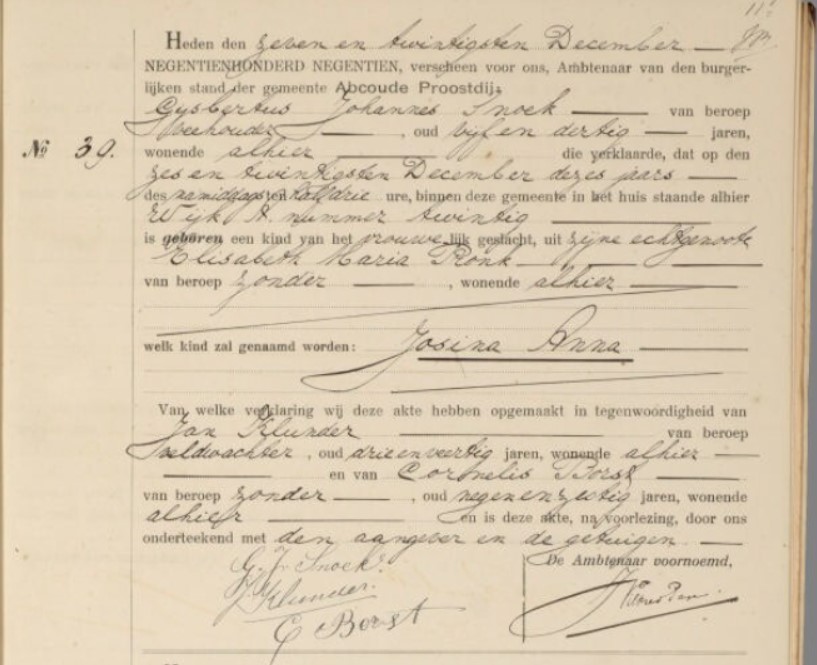 Heden den zeven en twintigsten December —
NEGENTIENHONDERD NEGENTIEN, verscheen voor ons, Ambtenaar van den burger-
lijken stand der gemeente Abcoude Proostdij:
Gysbertus Johannes Snoek — van beroep
veehouder —, oud vijf en dertig — jaren,
No 39. wonende alhier — die verklaarde, dat op den
zes en twintigsten December dezes jaars —
des namiddags ten half drie ure, binnen deze gemeente in het huis staande alhier
Wijk A. nummer twintig —
is geboren een kind van het vrouwelijk geslacht, uit zijne echtgenoote
Elisabeth Maria Pronk —
van beroep zonder —, wonende alhier —
welk kind zal genaamd worden: Josina Anna —
Van welke verklaring wij deze akte hebben opgemaakt in tegenwoordigheid van
Jan Klunder — van beroep
veldwachter, oud drie en veertig jaren, wonende alhier —
— en van Cornelis Borst —
van beroep zonder —, oud negen en zestig jaren, wonende
alhier — en is deze akte, na voorlezing, door ons
onderteekend met den aangever en de getuigen. —
G. J. Snoek.
De Ambtenaar voornoemd,
J. Klunder.
C Borst